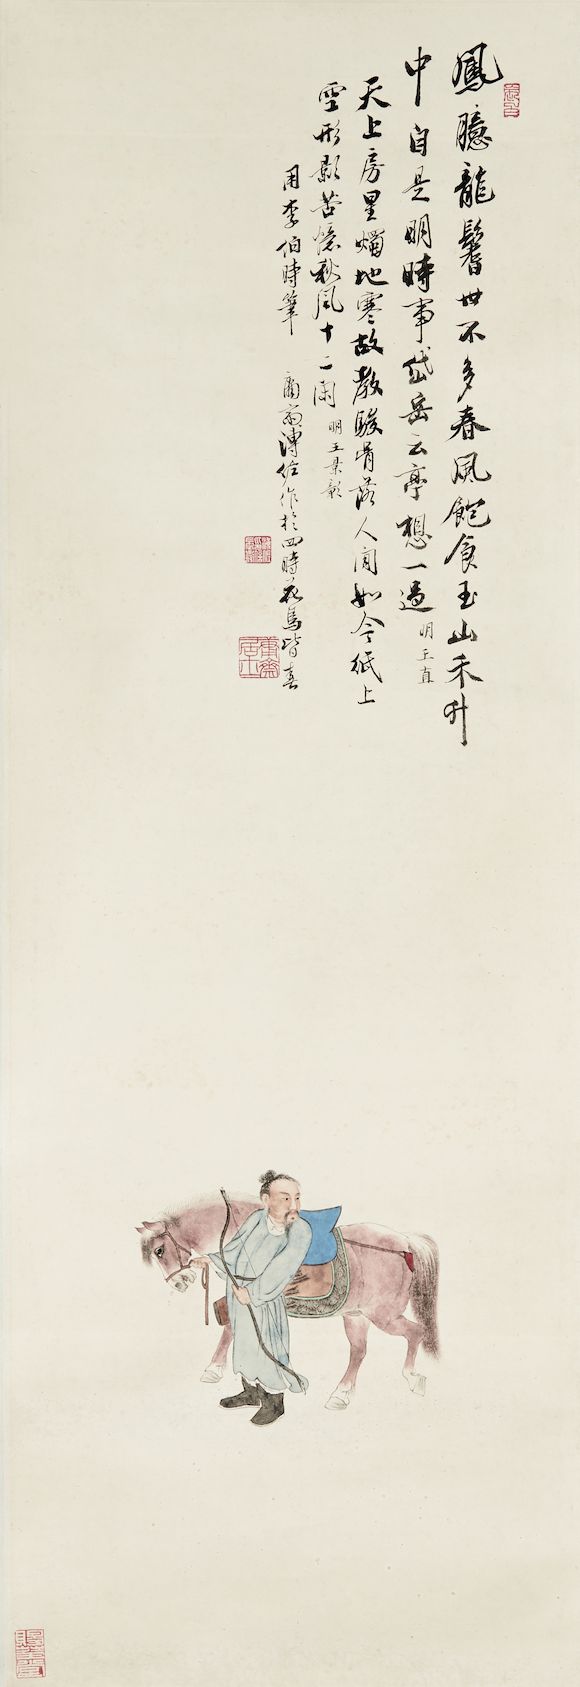 鳳臆龍鬐世不多春風飽食玉山禾升
中自是明時事岱岳云亭想一過 明王直
天上房星燭地寒故教駿骨落人間如今紙上
空形影苦憶秋風十二閑 明王景彰
用李伯時筆 庸齋溥佐作於四時花馬皆春
庸齋居士